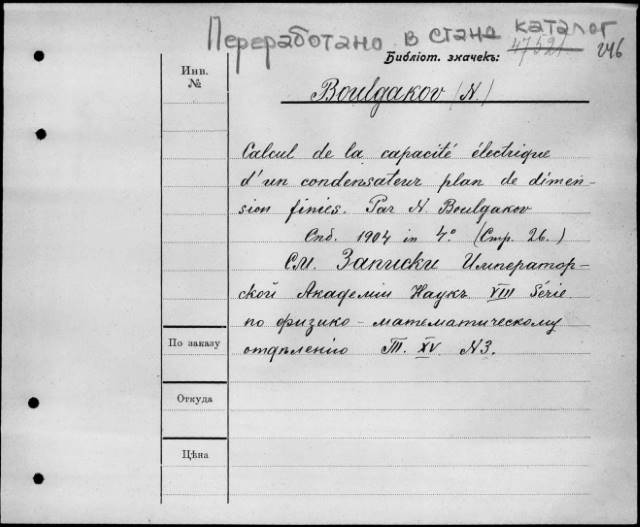 Переработано в станд каталог
Библіот. значекъ: 47521 246
Инв.
№
Boulgakov (N.)
Calcul de la capacité électrique
d'un condensateur plan de dimen-
sion finies. Par N. Boulgakov
Спб. 1904 in 4.° (Стр. 26.)
См. Записки Император-
ской Академіи Наукъ VIII Série
по физико-математическому
отдѣленію Т. XV. №3.
По заказу
Откуда
Цѣна